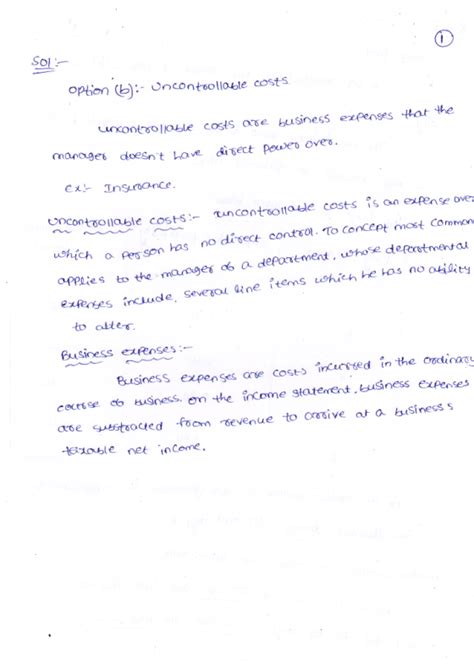 1
Sol:-
option (b):- Uncontrollable costs
uncontrollable costs are business expenses that the
manager doesn't have direct power over.
Ex:- Insurance.
Uncontrollable costs:- Uncontrollable costs is an expense over
which a person has no direct control. To concept most common
applies to the manager of a department, whose departmental
expenses include, several line items which he has no ability
to alter.
Business expenses:-
Business expenses are costs incurred in the ordinary
course of business. on the income statement, business expenses
are subtracted from revenue to arrive at a business's
taxable net income.